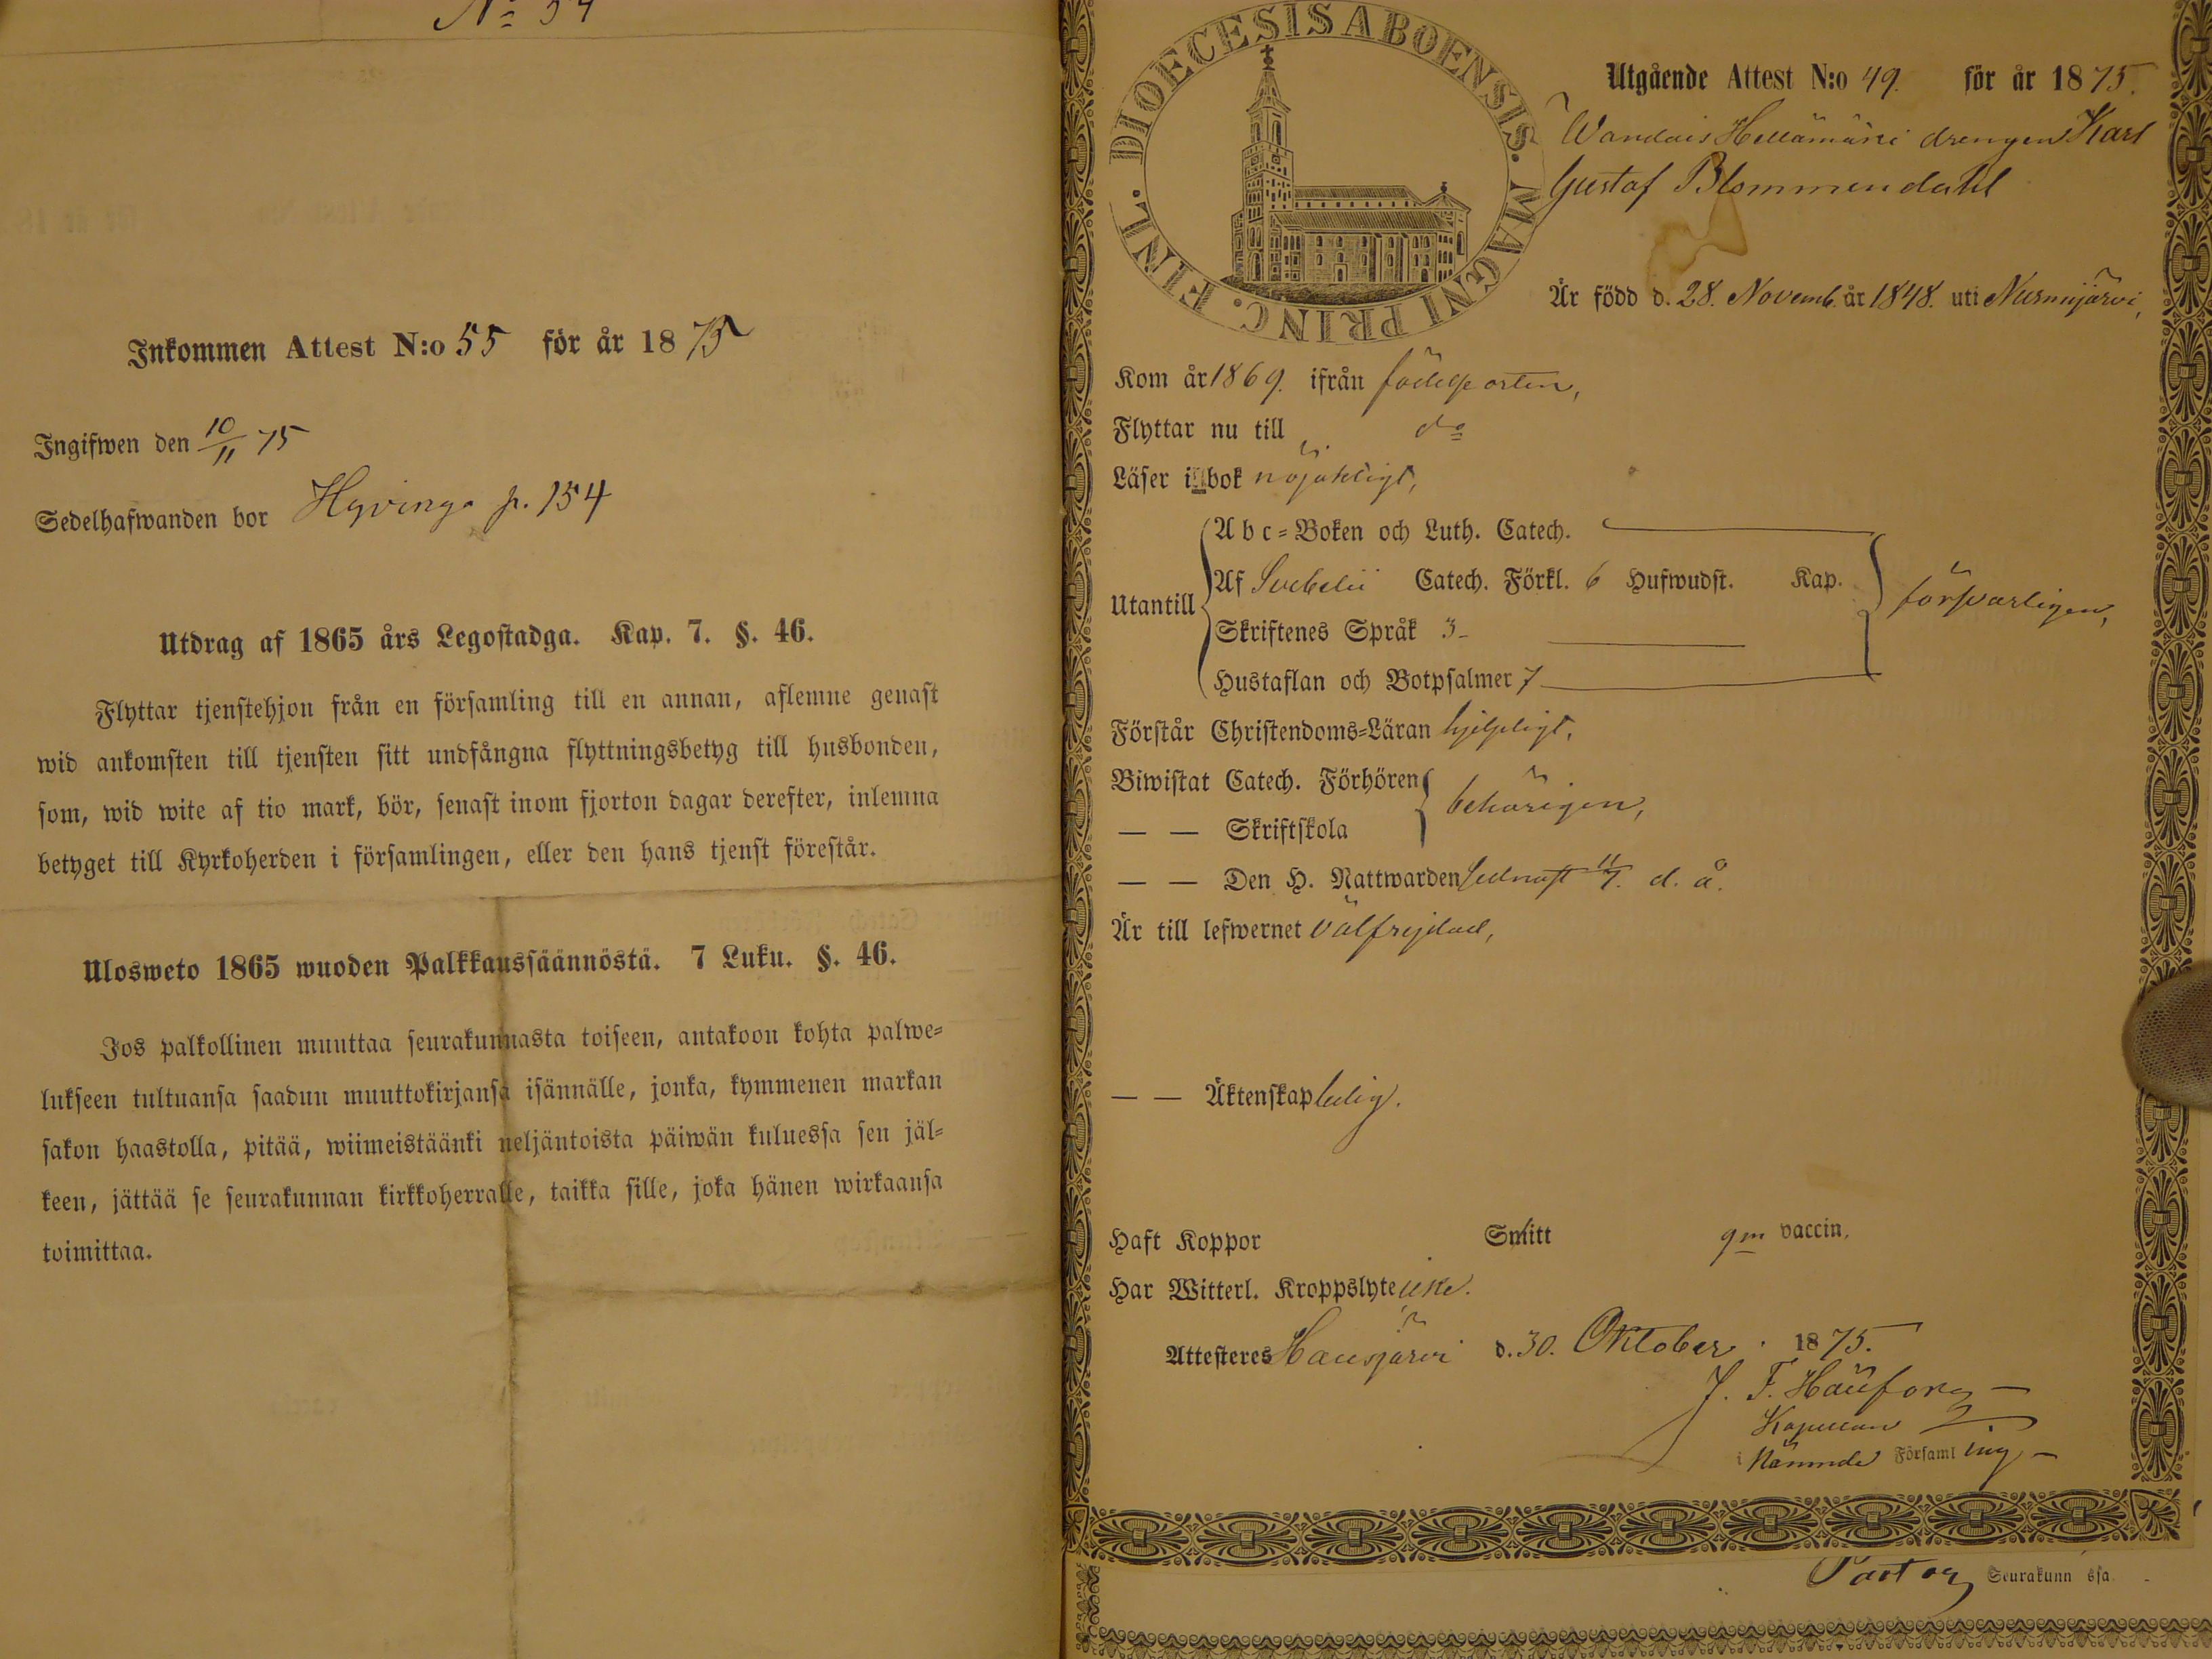 No 54
Inkommen Attest N:o 55 för år 1875
Ingifwen den 10/11 75
Sedelhafwanden bor Hyvinge p. 154
Utdrag af 1865 års Legostadga. Kap. 7. §. 46.
Flyttar tjenstehjon från en församling till en annan, aflemne genast
wid ankomsten till tjensten sitt undfångna flyttningsbetyg till husbonden,
som, wid wite af tio mark, bör, senast inom fjorton dagar derefter, inlemna
betyget till Kyrkoherden i församlingen, eller den hans tjenst förestår.
Ulosweto 1865 wuoden Palkkaussäännöstä. 7 Luku. §. 46.
Jos palkollinen muuttaa seurakunnasta toiseen, antakoon kohta palwe-
lukseen tultuansa saadun muuttokirjansa isännälle, jonka, kymmenen markan
sakon haastolla, pitää, wiimeistäänki neljäntoista päiwän kuluessa sen jäl-
keen, jättää se seurakunnan kirkkoherralle, taikka sille, joka hänen wirkaansa
toimittaa.
DIOECESIS ABOENSIS. MAGNI PRINC. FINL.
Utgående Attest N:o 49. för år 1875.
drengen Karl
Gustaf Blommendahl
Är född d. 28. Novemb. år 1848. uti Nurmijärvi,
Kom år 1869. ifrån födelseorten,
Flyttar nu till do
Läser i bok nöjaktligt,
Utantill
A b c-Boken och Luth. Catech.
Af Svebelii Catech. Förkl. 6 Hufwudst. Kap.
försvarligen,
Skriftenes Språk 3
Hustaflan och Botpsalmer 7
Förstår Christendoms-Läran hjelpligt,
Biwistat Catech. Förhören
behörigen,
— — Skriftskola
— — Den H. Nattwarden sednast 11/7. d. å.
Är till lefwernet välfrejdad,
— — Äktenskap ledig.
Haft Koppor Smitt gm vaccin.
Har Witterl. Kroppslyte icke.
Attesteres Hausjärvi d. 30. Oktober 1875.
J. F.
Kapellan
i nämnde Församling
Pastor Seurakunn ssa.